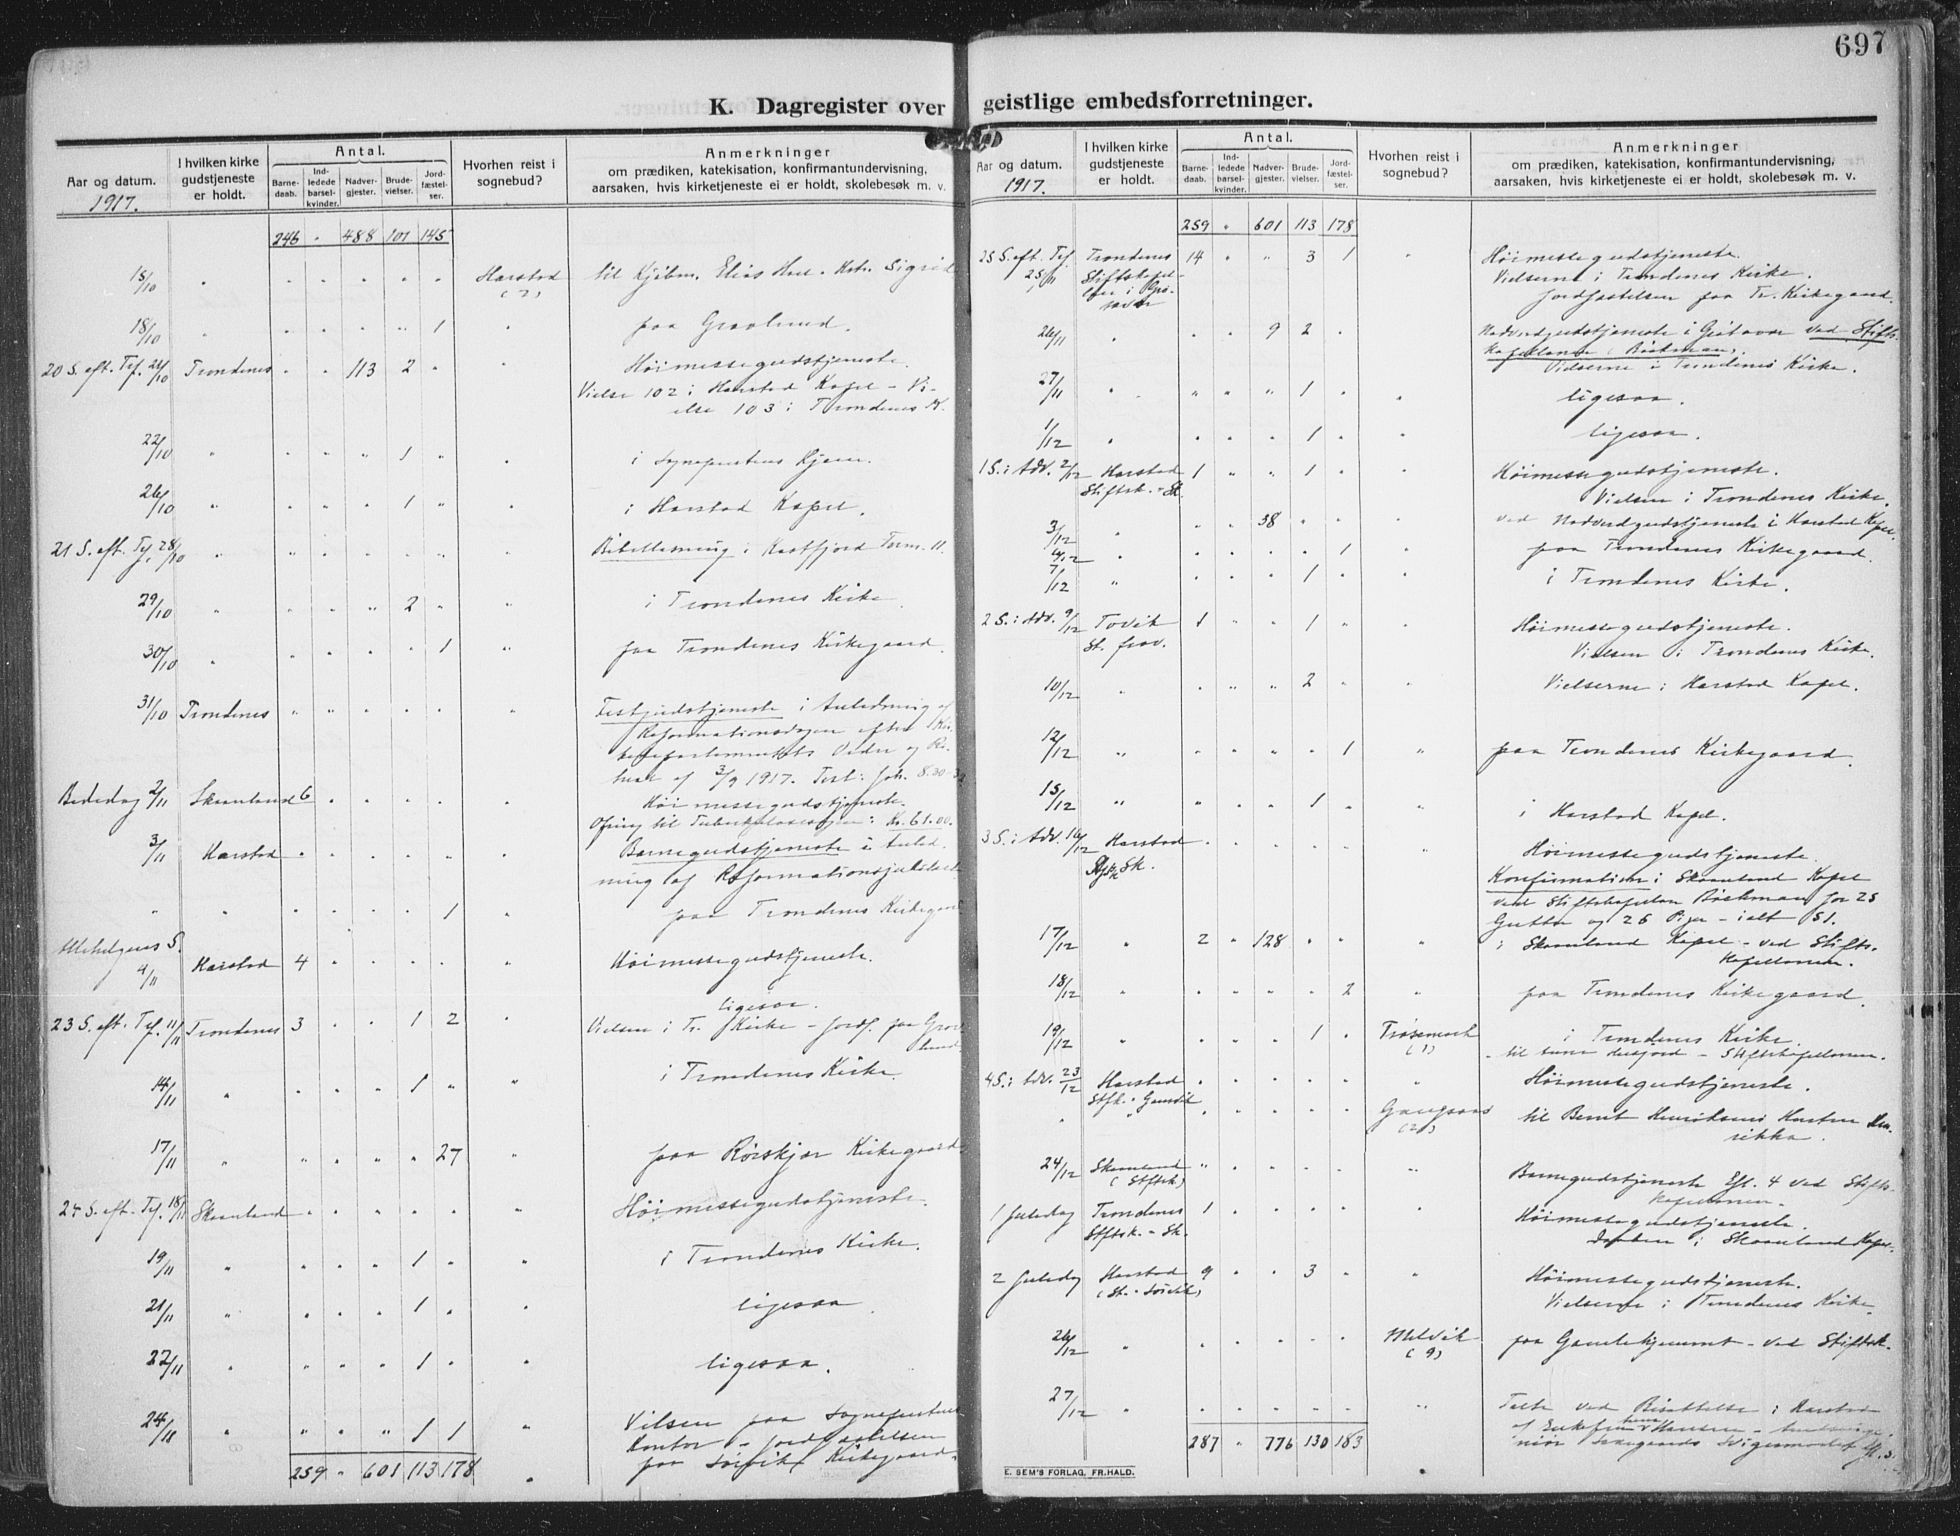 697
K. Dagregister over geistlige embedsforretninger.
Aar og datum.
1917.
I hvilken kirke gudstjeneste er holdt.
Antal.
Barne-daab.
Ind-ledede barsel-kvinder.
Nadver-gjester.
Brude-vielser.
Jord-fæstel-ser.
Hvorhen reist i sognebud?
Anmerkninger
om prædiken, katekisation, konfirmantundervisning,
aarsaken, hvis kirketjeneste ei er holdt, skolebesøk m. v.
246 " 488 101 145
15/10 " " " " " " Harstad til Kjøbm. Elias
(2)
18/10 " " " " " 1 " paa Graalund.
20 S. eft. Tref. 21/10 Trondenes " " 113 2 " " Høimessegudstjeneste.
Vielse 102 i Harstad Kapel - Vi-
else 103 i Trondenes K.
22/10 " " " " 1 " " i Sogneprestens Hjem.
26/10 " " " " 1 " i Harstad Kapel.
21 S. eft. Tref. 28/10 " " " " " " " Bibellæsning i Kasfjord
29/10 " " " " 2 " " i Trondenes Kirke.
30/10 " " " " " 1 " paa Trondenes Kirkegaard.
31/10 Trondenes " " " " " " Festgudstjeneste i Anledning af
Reformationsdagen efter Kir-
kedepartementets Ordre og
af 3/9 1917. Text: Joh. 8.30-
Bededag 2/11 Skaanland 6 " " " " " Høimessegudstjeneste.
Ofring til Tuberkulosesagen: Kr. 61.00.
3/11 Harstad " " " " " " Barnegudstjeneste i Anled-
ning af Reformationsjubilæet
" " " " " " 1 " paa Trondenes Kirkegaard
Allehelgens S. 4/11 Harstad 4 " " " " " Høimessegudstjeneste.
23 S. eft. Tref. 11/11 Trondenes 3 " " 1 2 " ligesaa.
Vielsen i Tr. Kirke - Jordf. paa Graa-
lund.
14/11 " " " " 1 " " i Trondenes Kirke.
17/11 " " " " " 27 " paa Rørskjær Kirkegaard
24 S. eft. Tref. 18/11 Skaanland " " " " " " Høimessegudstjeneste.
19/11 " " " " 1 " " i Trondenes Kirke.
21/11 " " " " 1 " " ligesaa.
22/11 " " " " 1 " " ligesaa.
24/11 " " " " 1 1 " Vielsen paa Sogneprestens
Kontor - Jordfæstelsen
paa Sørvik Kirkegaard.
259 " 601 113 178
Aar og datum.
1917.
I hvilken kirke gudstjeneste er holdt.
Antal.
Barne-daab.
Ind-ledede barsel-kvinder.
Nadver-gjester.
Brude-vielser.
Jord-fæstel-ser.
Hvorhen reist i sognebud?
Anmerkninger
om prædiken, katekisation, konfirmantundervisning,
aarsaken, hvis kirketjeneste ei er holdt, skolebesøk m. v.
259 " 601 113 178
25 S. eft. Tref. 25/11 Trondenes 14 " " 3 1 " Høimessegudstjeneste.
Stiftskapel-
i Grø-
tavær
Vielserne i Trondenes Kirke.
Jordfæstelsen paa Tr. Kirkegaard.
26/11 " " " 9 2 " Nadverdgudstjeneste i Grøtavær ved Stifts-
kapellanen Bøckman.
Vielserne i Trondenes Kirke.
27/11 " " " " 1 " " ligesaa.
1/12 " " " " 1 " " ligesaa.
1 S. i Adv. 2/12 Harstad 1 " " 1 " " Høimessegudstjeneste.
Stiftsk. - Sk. Vielsen i Trondenes Kirke.
3/12 " " " 38 " " " ved Nadverdgudstjeneste i Harstad Kapel.
4/12 " " " " " 1 " paa Trondenes Kirkegaard.
7/12 " " " " 1 " " i Trondenes Kirke.
2 S. i Adv. 9/12 Tovik 1 " " 1 " " Høimessegudstjeneste.
St. Vielsen i Trondenes Kirke.
10/12 " " " " 2 " " Vielserne i Harstad Kapel.
12/12 " " " " " 1 " paa Trondenes Kirkegaard.
15/12 " " " " 1 " " i Harstad Kapel.
3 S. i Adv. 16/12 Harstad " " " " " " Høimessegudstjeneste.
Stfsk. Sk. Konfirmation i Skaanland Kapel
ved Stiftskapellan Bøckman for 25
Gutter og 26 Piger - ialt 51.
17/12 " 2 " 128 " " " i Skaanland Kapel - ved Stifts-
kapellanen.
18/12 " " " " " 2 " paa Trondenes Kirkegaard.
19/12 " " " " 1 " i Trondenes Kirke.
(1) til - Stiftskapellanen.
4 S. i Adv. 23/12 Harstad " " " " " " Høimessegudstjeneste.
Stfsk. -
" " " " " " " Gangsaas til Bernt Henriksens
(2)
24/12 Skaanland " " " " " " Barnegudstjeneste Eft. 4 ved Stifts-
(Stiftsk) kapellanen.
1 Juledag Trondenes 1 " " " " " Høimessegudstjeneste.
Stftsk. - Sk. Daaben i Skaanland Kapel.
2 Juledag Harstad 9 " " 3 " " Høimessegudstjeneste.
(St. - Sørvik) Vielserne i Trondenes Kirke.
26/12 " " " " " " Melvik paa Gamlehjemmet - ved Stiftsk.
(9)
27/12 " " " " " " " Tale ved Bisættelse i Harstad
af Enkefru Hansen -
Svigermoder
287 " 776 130 183
E. SEM'S FORLAG, FR.HALD.